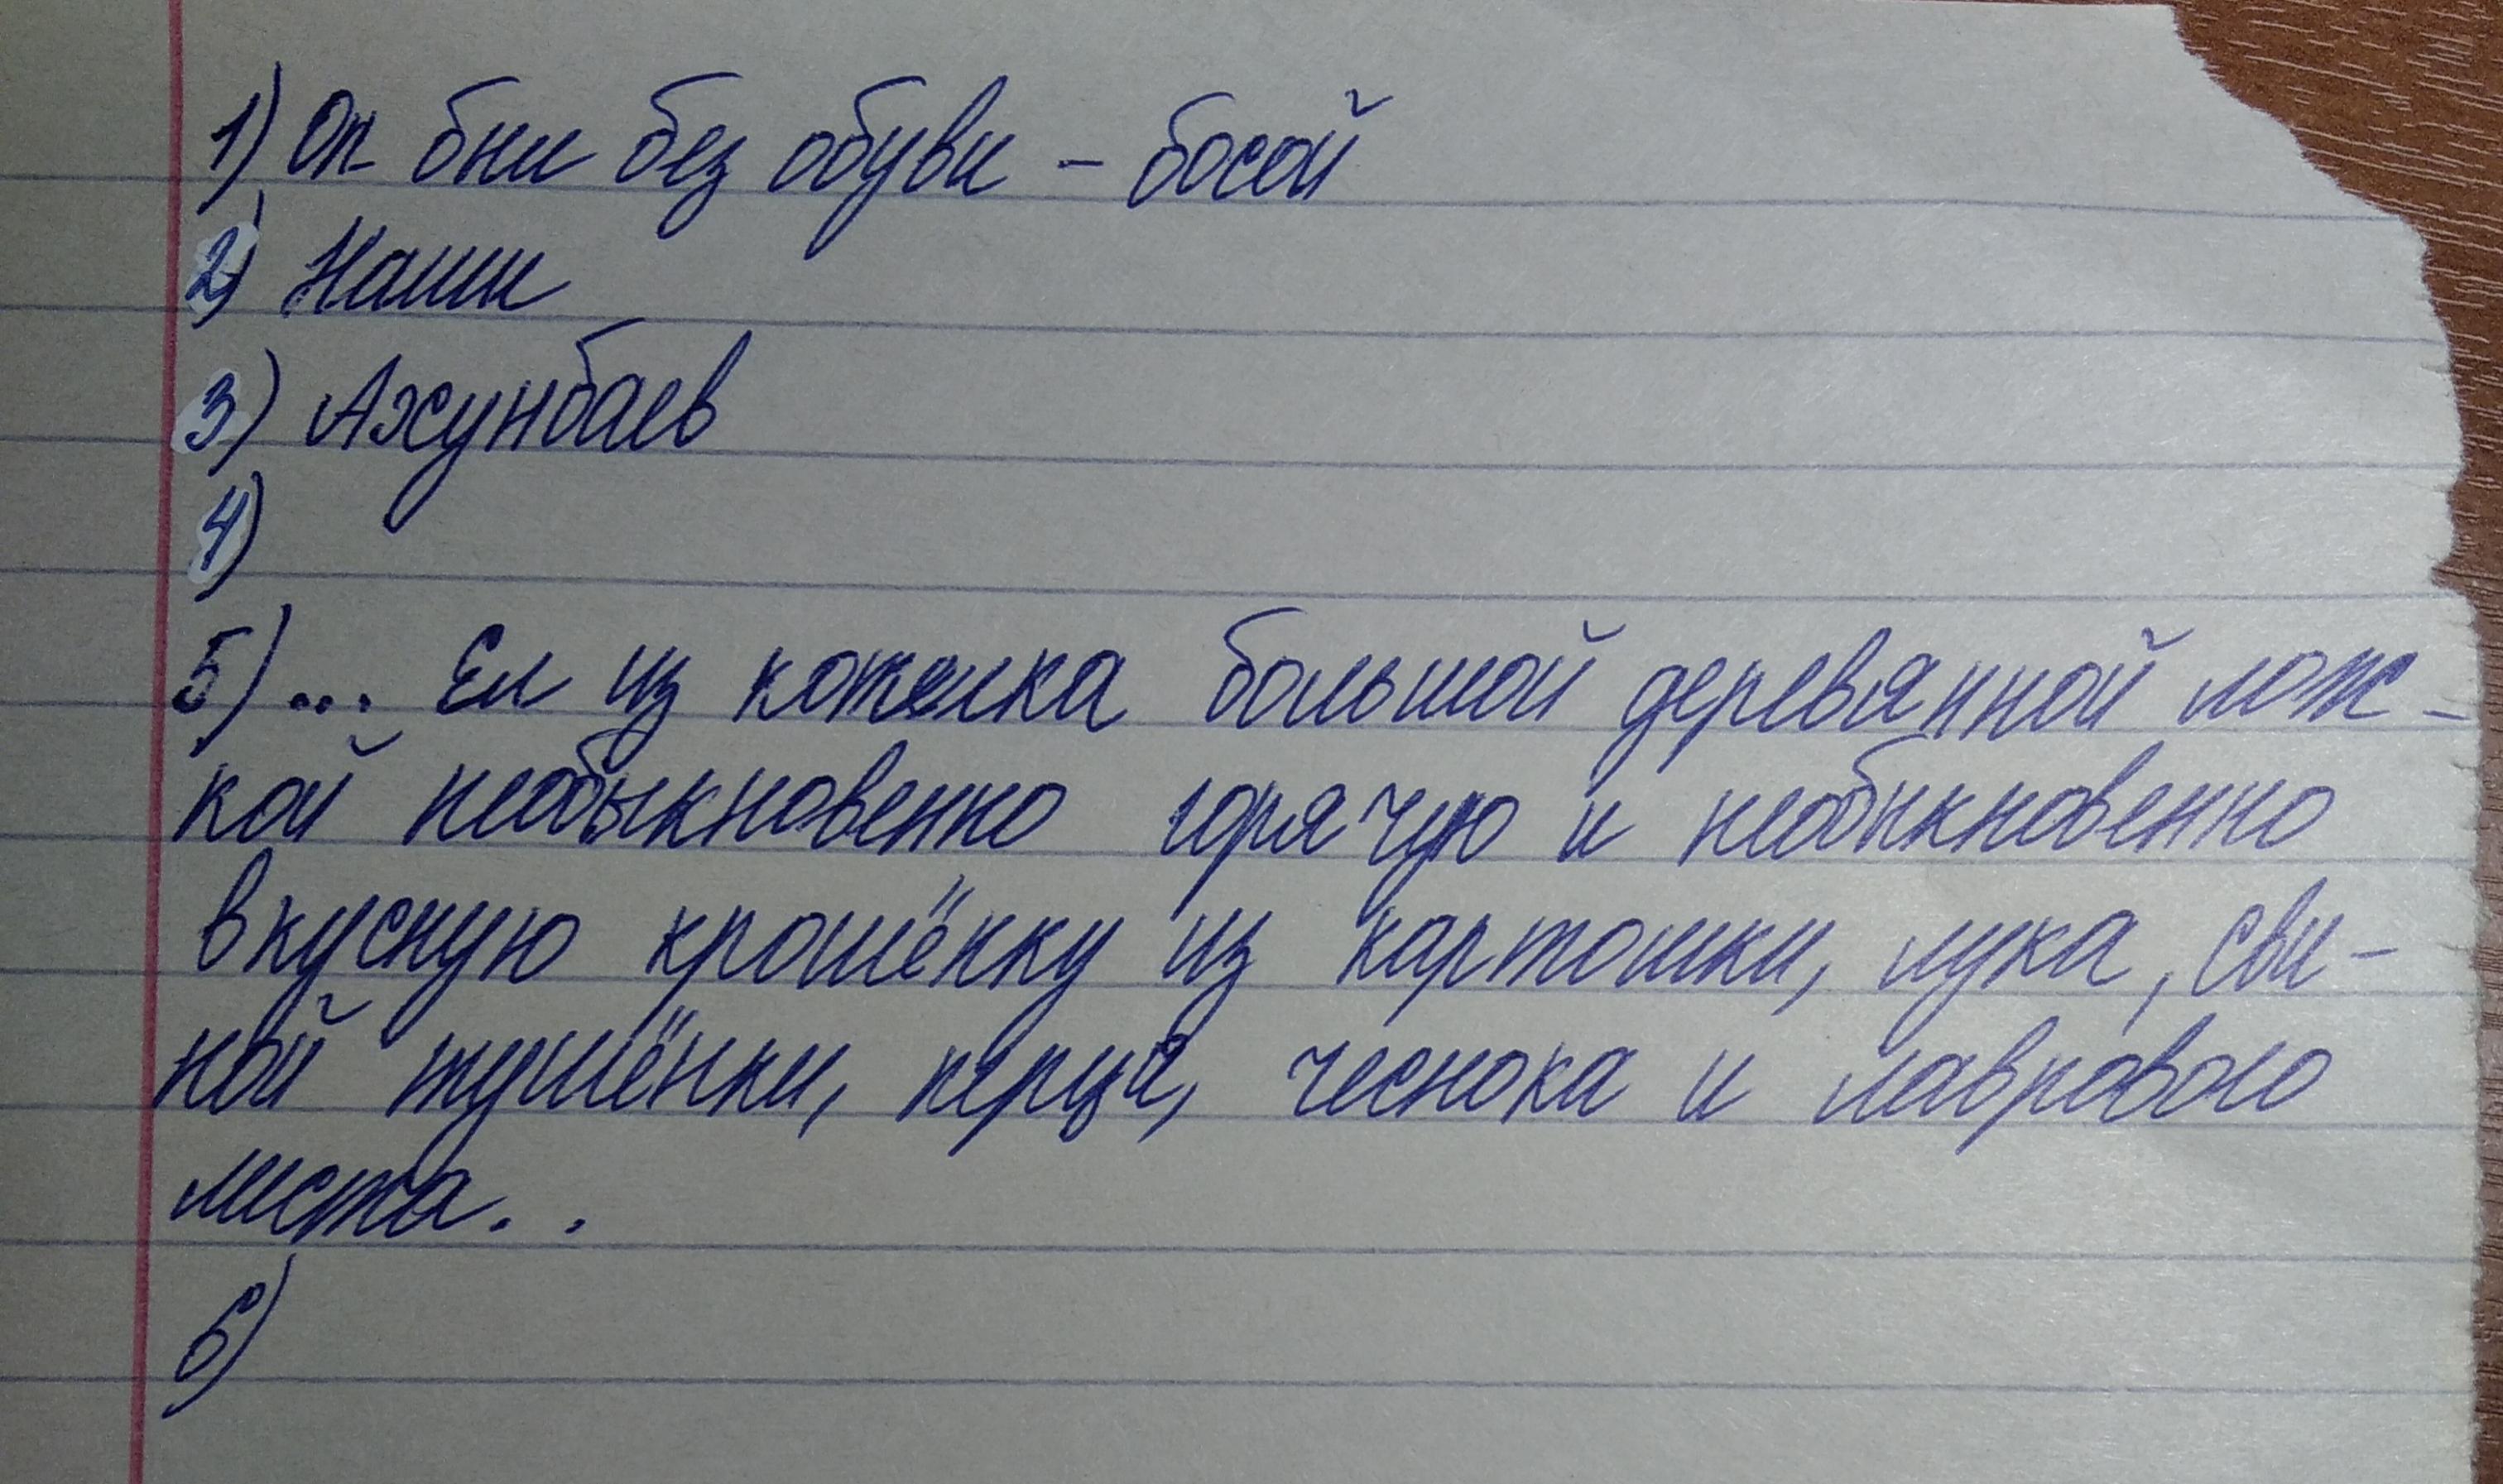 1) Он был без обуви - босой
2) Наши
3) Ахунбаев
4)
5) ... Ел из котелка большой деревянной лож-
кой необыкновенно горячую и необыкновенно
вкусную крошёнку из картошки, лука, сви-
ной тушёнки, перца, чеснока и лаврового
листа..
6)